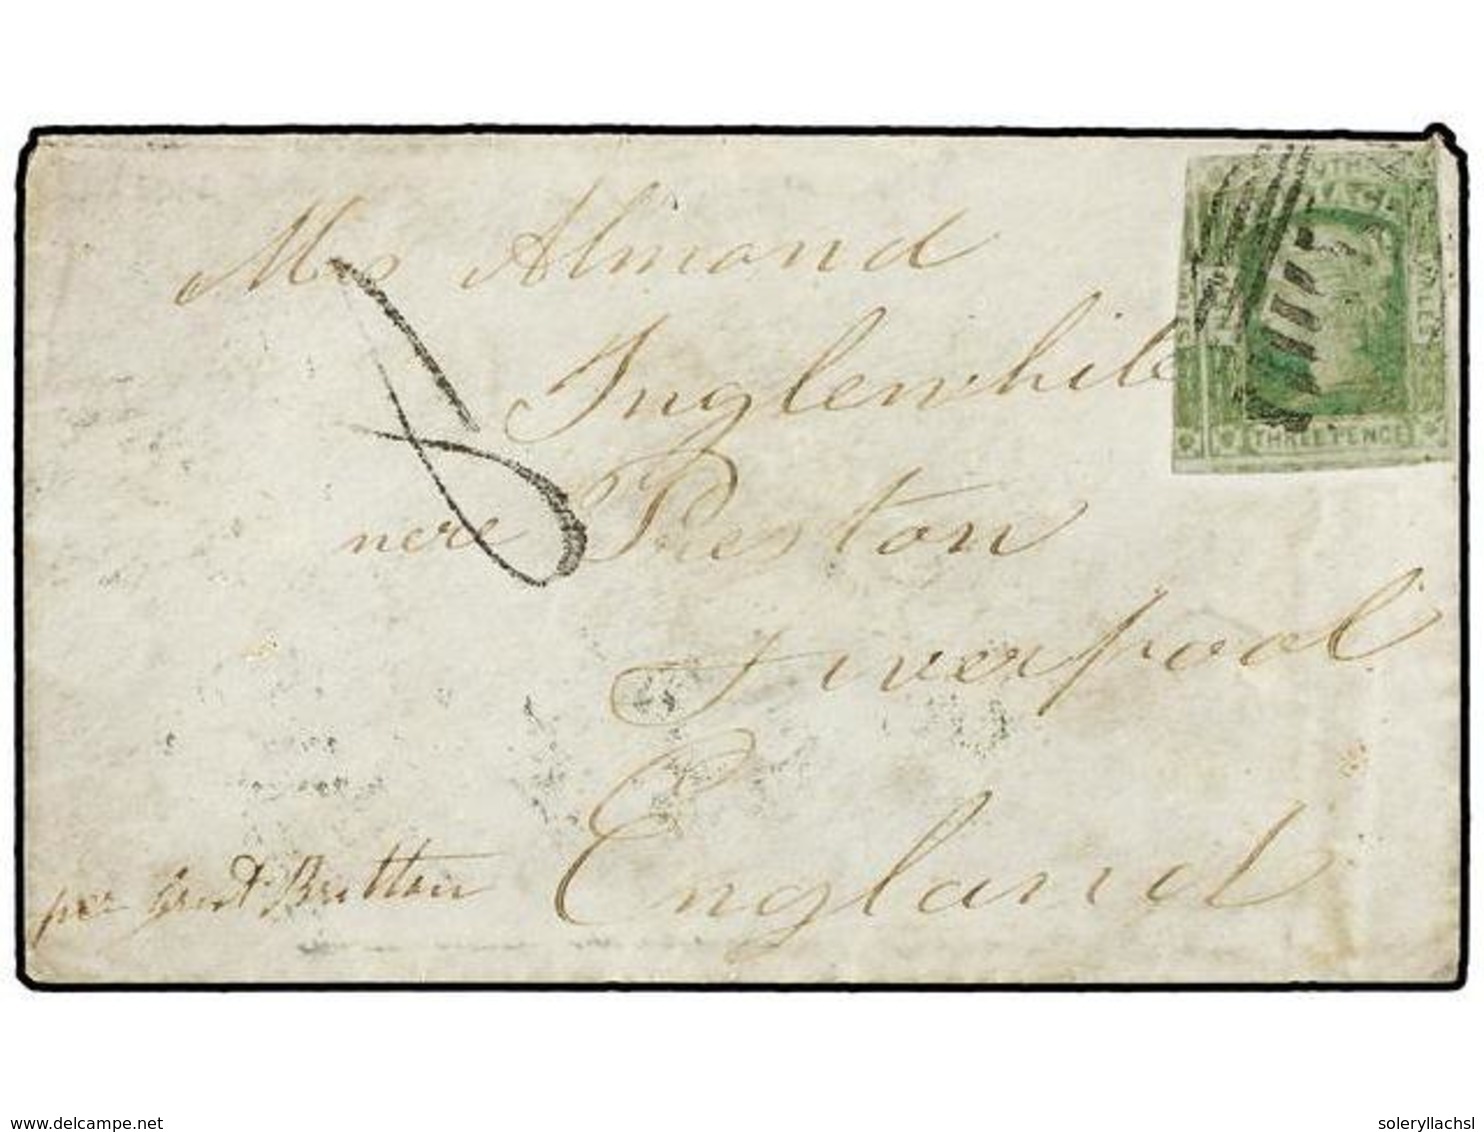 Mrs Almond
Inglewhite
nere Preston
Liverpool
England
per Great Brittain
WALES
THREE PENCE
8
delcampe.net
soleryllachsl